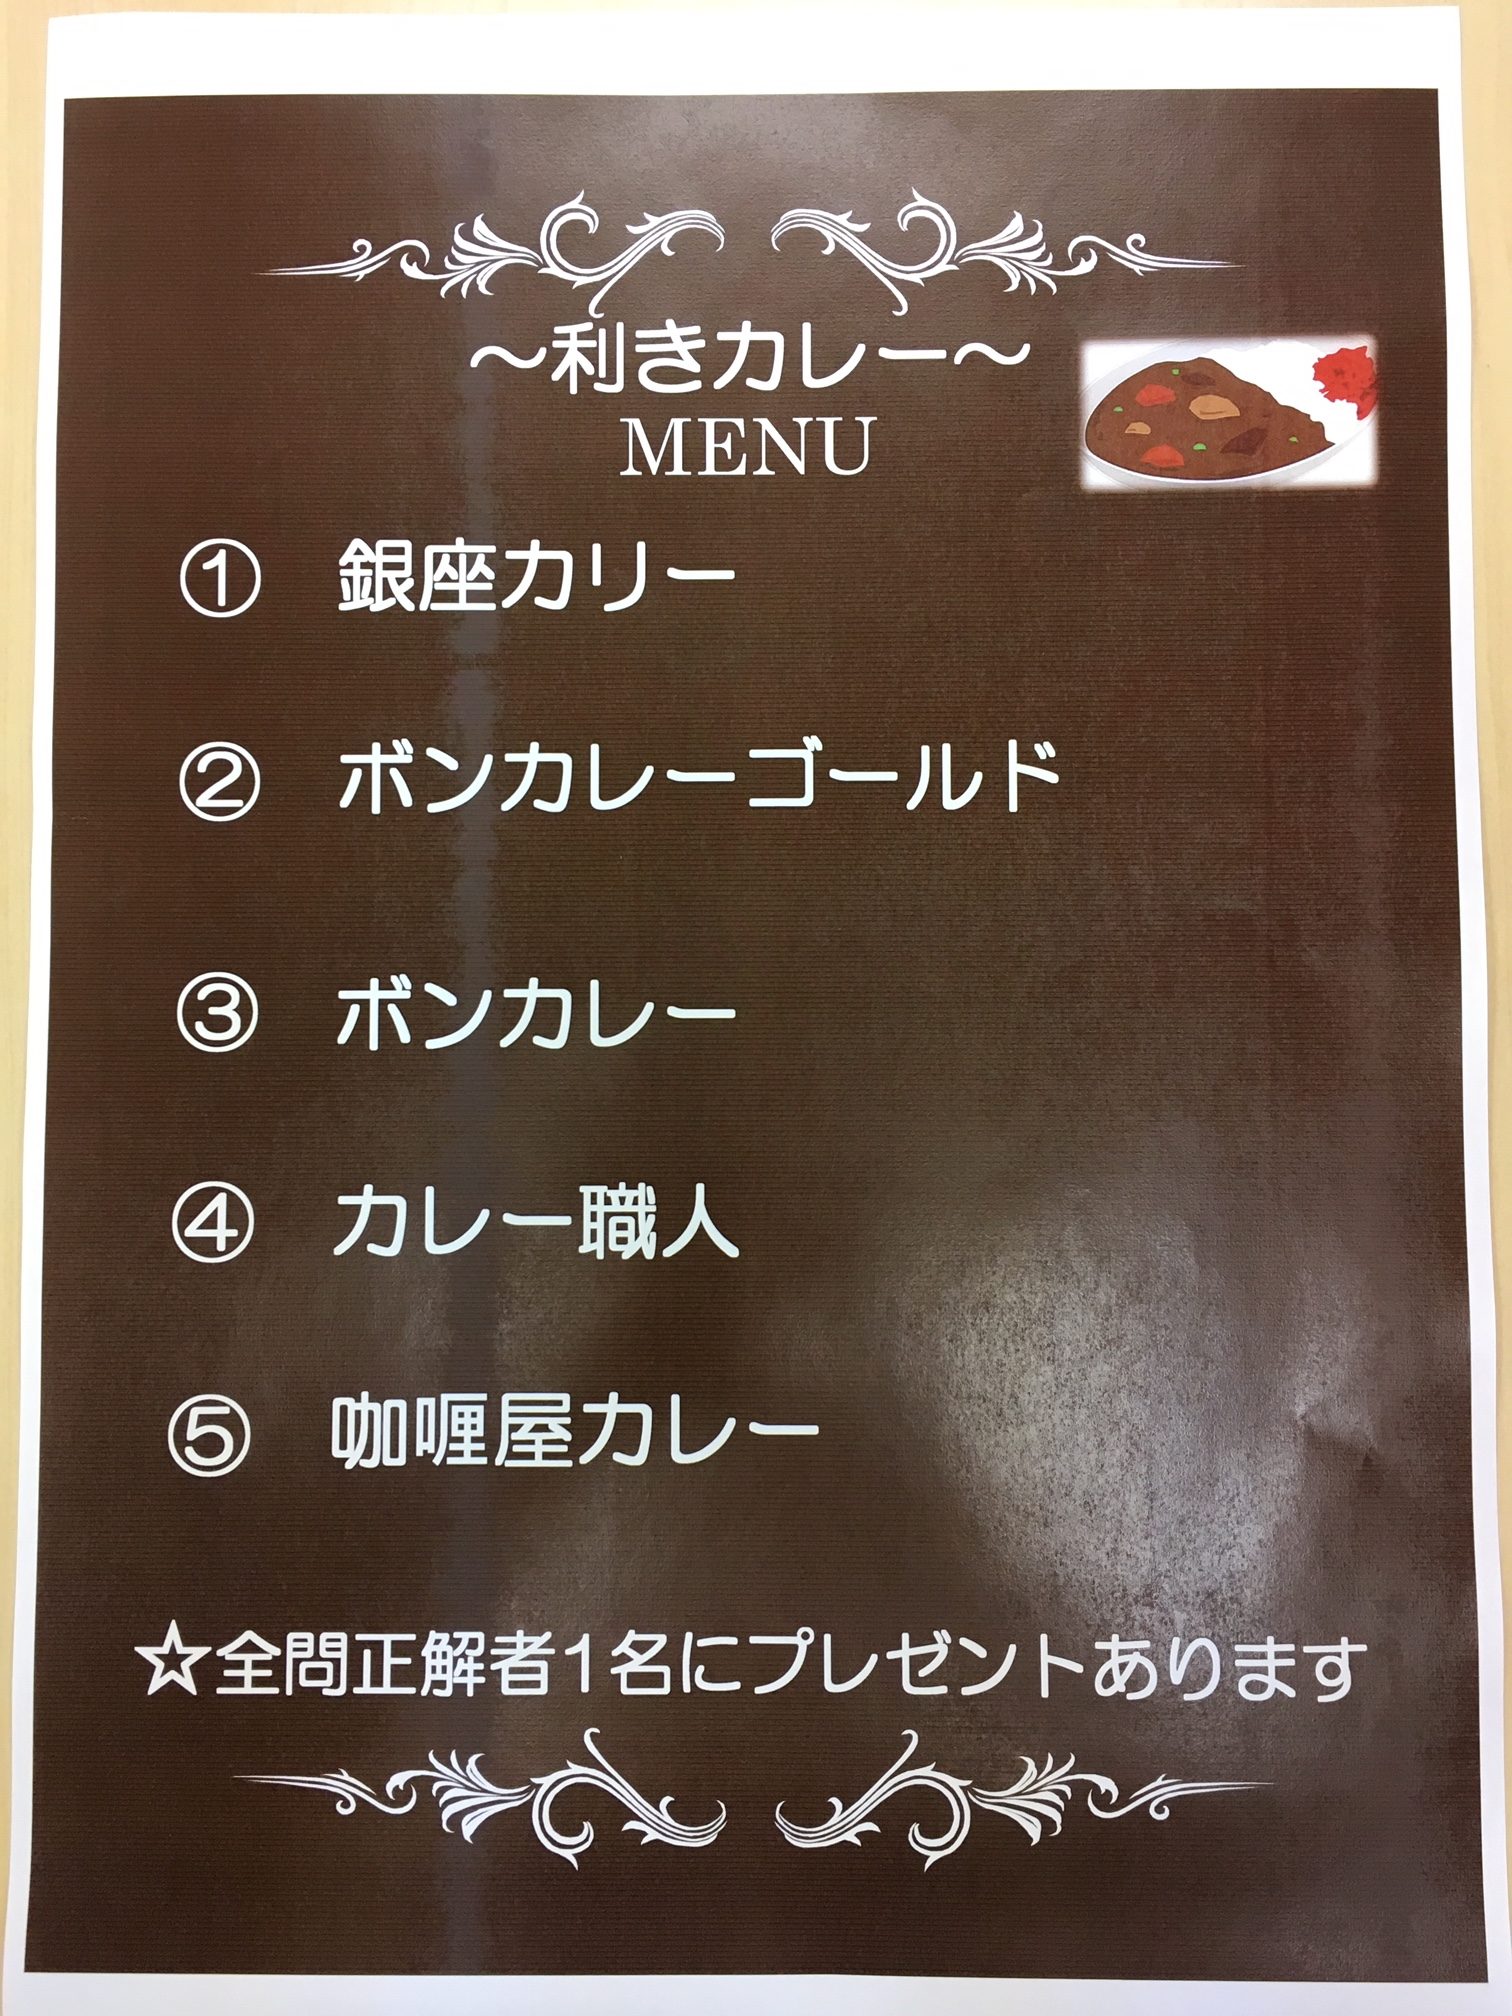 ～利きカレー～
MENU
① 銀座カリー
② ボンカレーゴールド
③ ボンカレー
④ カレー職人
⑤ 咖喱屋カレー
☆全問正解者1名にプレゼントあります